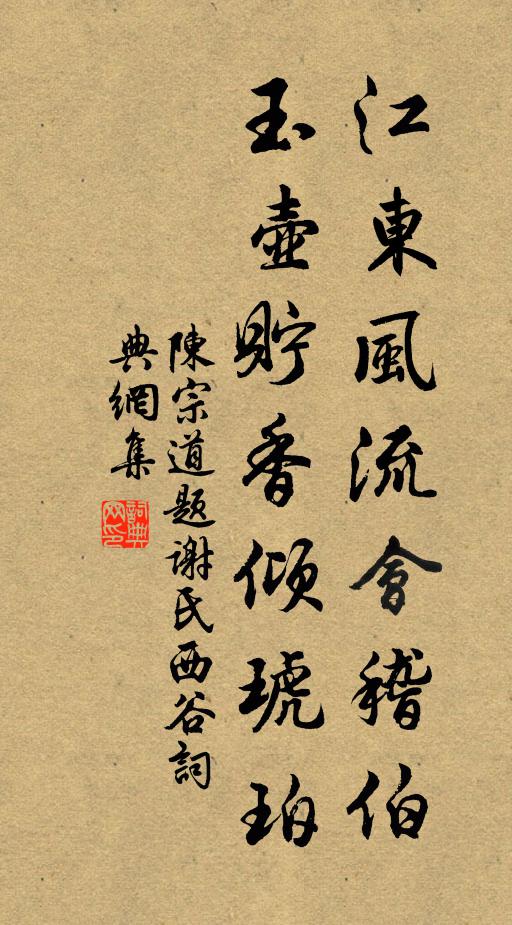 江東風流會稽伯
玉壺貯香傾琥珀
陳宗道題謝氏西谷詞
典網集
詞典網印